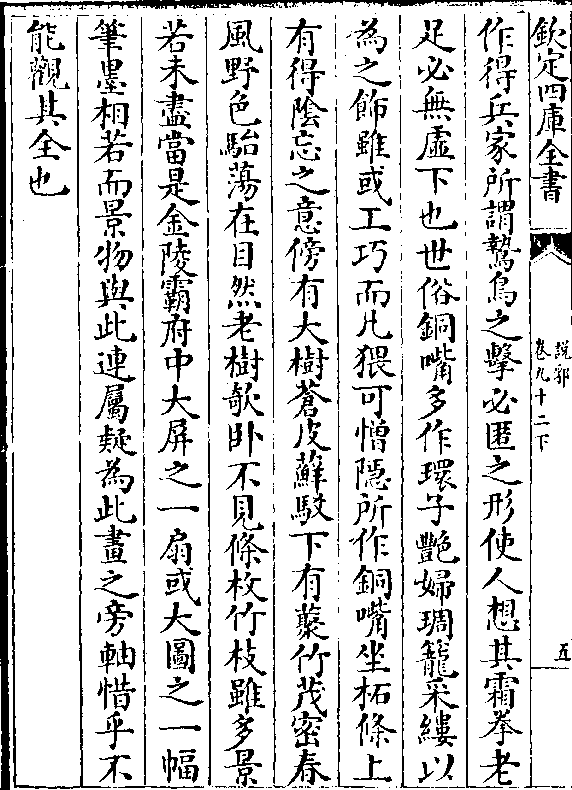 欽定四庫全書
說郛
卷九十二下
五
作得兵家所謂鷙鳥之擊必匿之形使人想其霜拳老
足必無虛下也世俗銅嘴多作環子艷婦琱籠采縷以
為之飾雖或工巧而凡猥可憎隠所作銅嘴坐柘條上
有得陰忘之意傍有大樹蒼皮蘚駮下有藂竹茂密春
風野色駘蕩在目然老樹欹卧不見條枚竹枝雖多景
若未盡當是金陵霸府中大屏之一扇或大圖之一幅
筆墨相若而景物與此連屬疑為此畫之旁軸惜乎不
能觀其全也